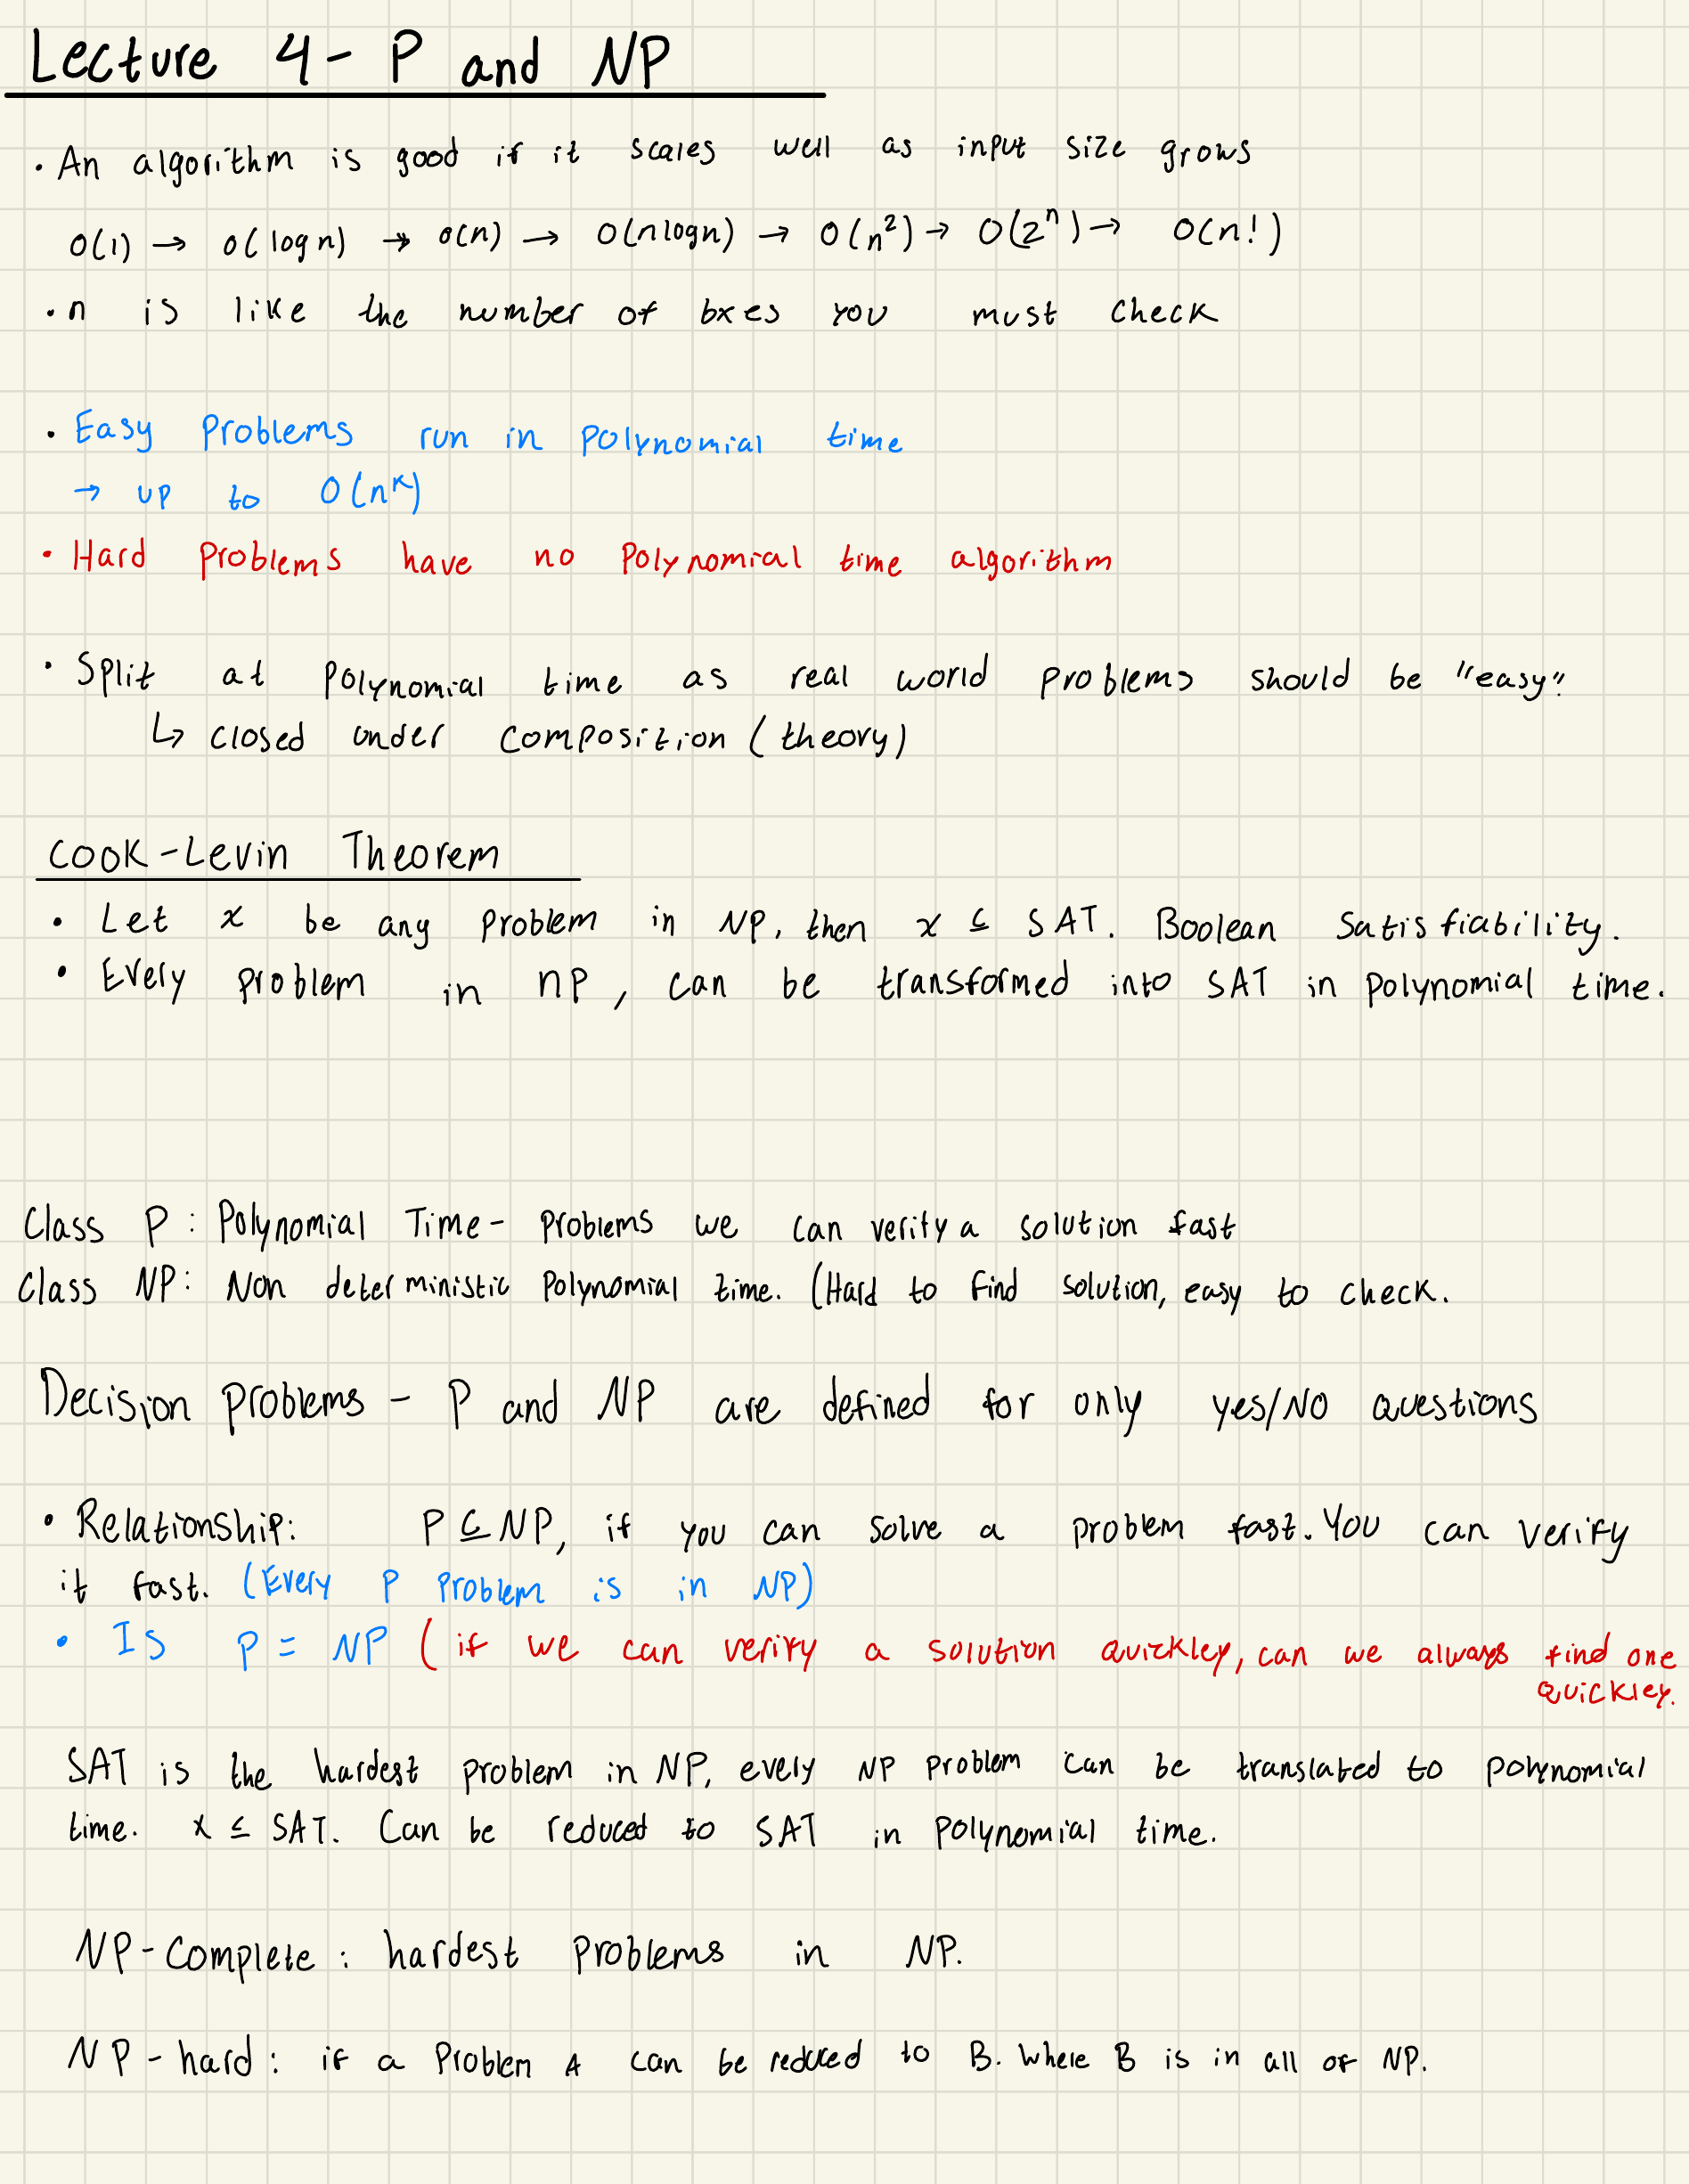 Lecture 4 - P and NP
• An algorithm is good if it scales well as input size grows
O(1) → O(log n) → O(n) → O(n log n) → O(n²) → O(2ⁿ) → O(n!)
• n is like the number of bxes you must check
• Easy problems run in polynomial time
→ up to O(nᵏ)
• Hard problems have no polynomial time algorithm
• Split at polynomial time as real world problems should be "easy".
↳ closed under composition (theory)
Cook-Levin Theorem
• Let x be any problem in NP, then x ≤ SAT. Boolean Satisfiability.
• Every problem in np, can be transformed into SAT in polynomial time.
Class P: Polynomial Time - problems we can verify a solution fast
Class NP: Non deterministic polynomial time. (Hard to find solution, easy to check.
Decision problems - P and NP are defined for only yes/NO questions
• Relationship: P ⊆ NP, if you can solve a problem fast. You can verify
it fast. (Every P problem is in NP)
• Is P = NP (if we can verify a solution quickley, can we always find one
quickley.
SAT is the hardest problem in NP, every NP problem can be translated to polynomial
time. x ≤ SAT. Can be reduced to SAT in polynomial time.
NP-Complete: hardest problems in NP.
NP-hard: if a problem A can be reduced to B. Where B is in all of NP.